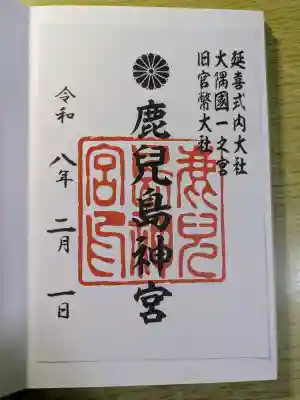 延喜式内大社
大隅國一之宮
旧官幣大社
鹿兒島神宮
令和八年二月一日
鹿兒
島神
宮印